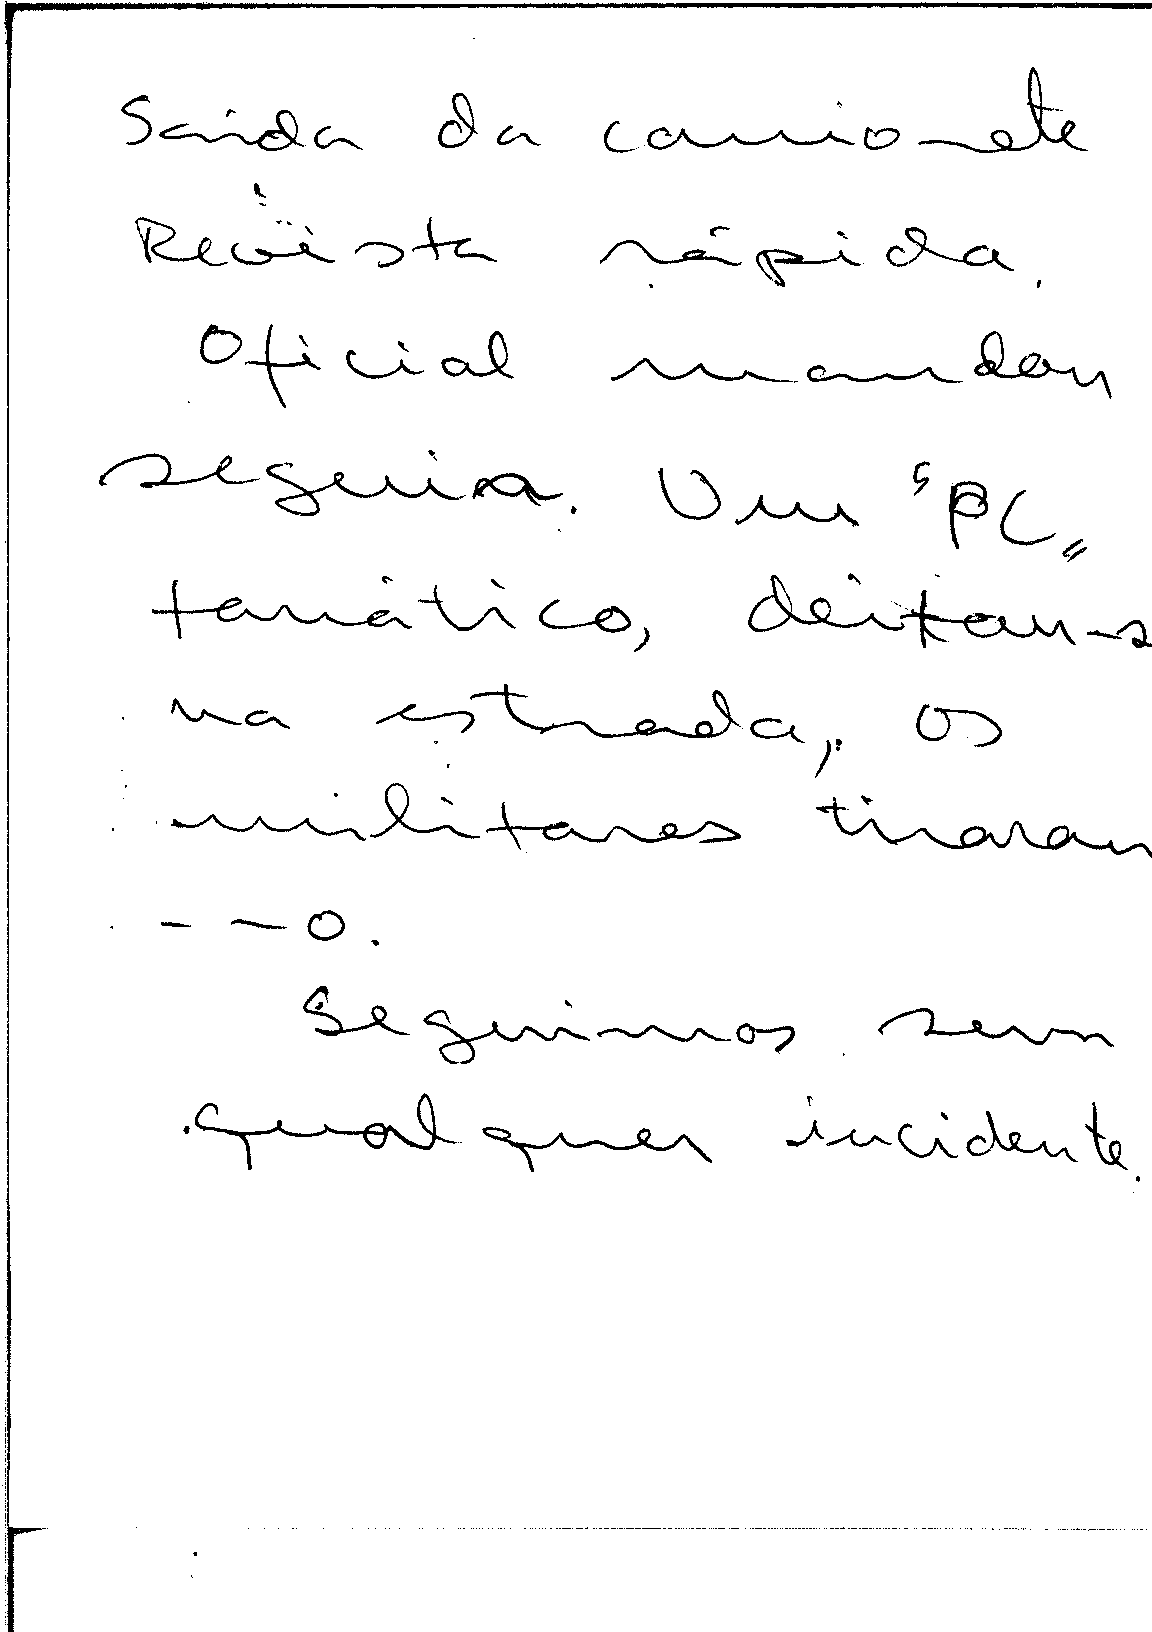 Saída da camionete
Revista rápida.
Oficial mandou
seguir. Um "PC"
fanático, deitou-s
na estrada, os
militares tiraram
--o.
Seguimos sem
qualquer incidente.